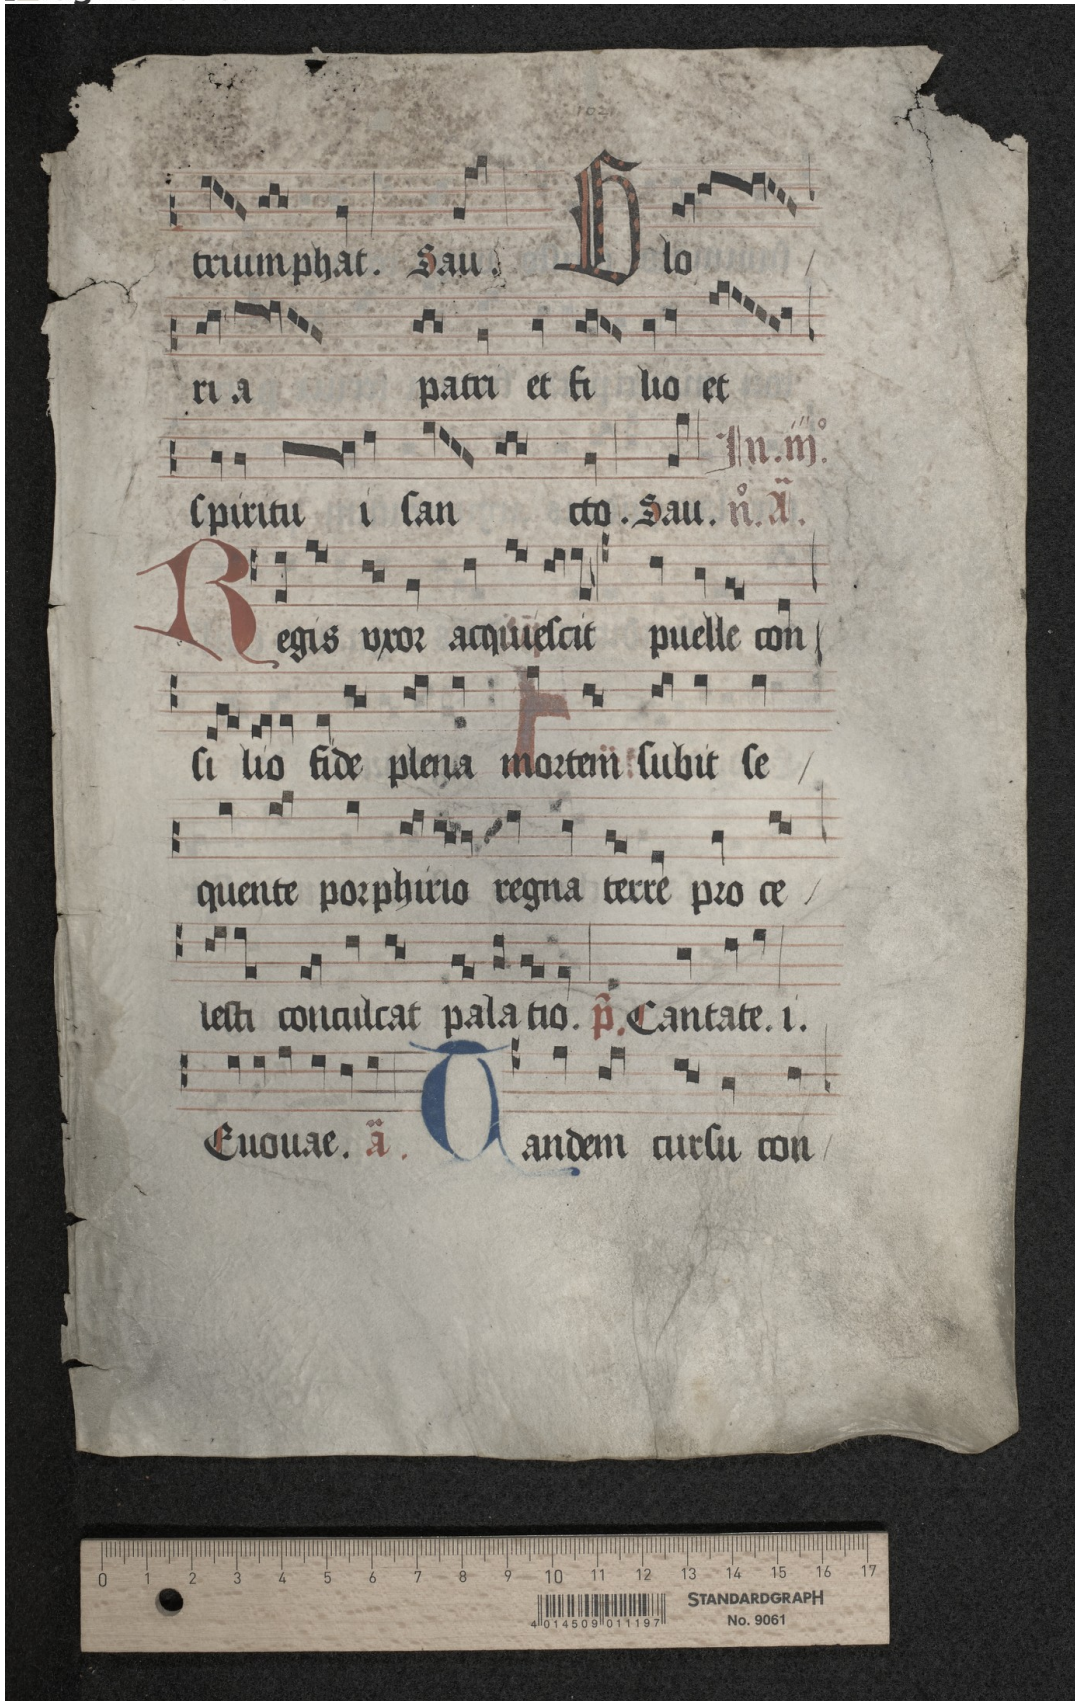 triumphat. Sau. Glo
ri a patri et fi lio et
In.iij.º
spiritu i san cto. Sau. nº. Ä.
Regis uxor acquiescit puelle con
si lio fide plena mortem subit se
quente porphirio regna terre pro ce
lesti conculcat palatio. p̃. Cantate. i.
Euouae. ä. Tandem cursu con
0 1 2 3 4 5 6 7 8 9 10 11 12 13 14 15 16 17
STANDARDGRAPH
No. 9061
4 014509 011197